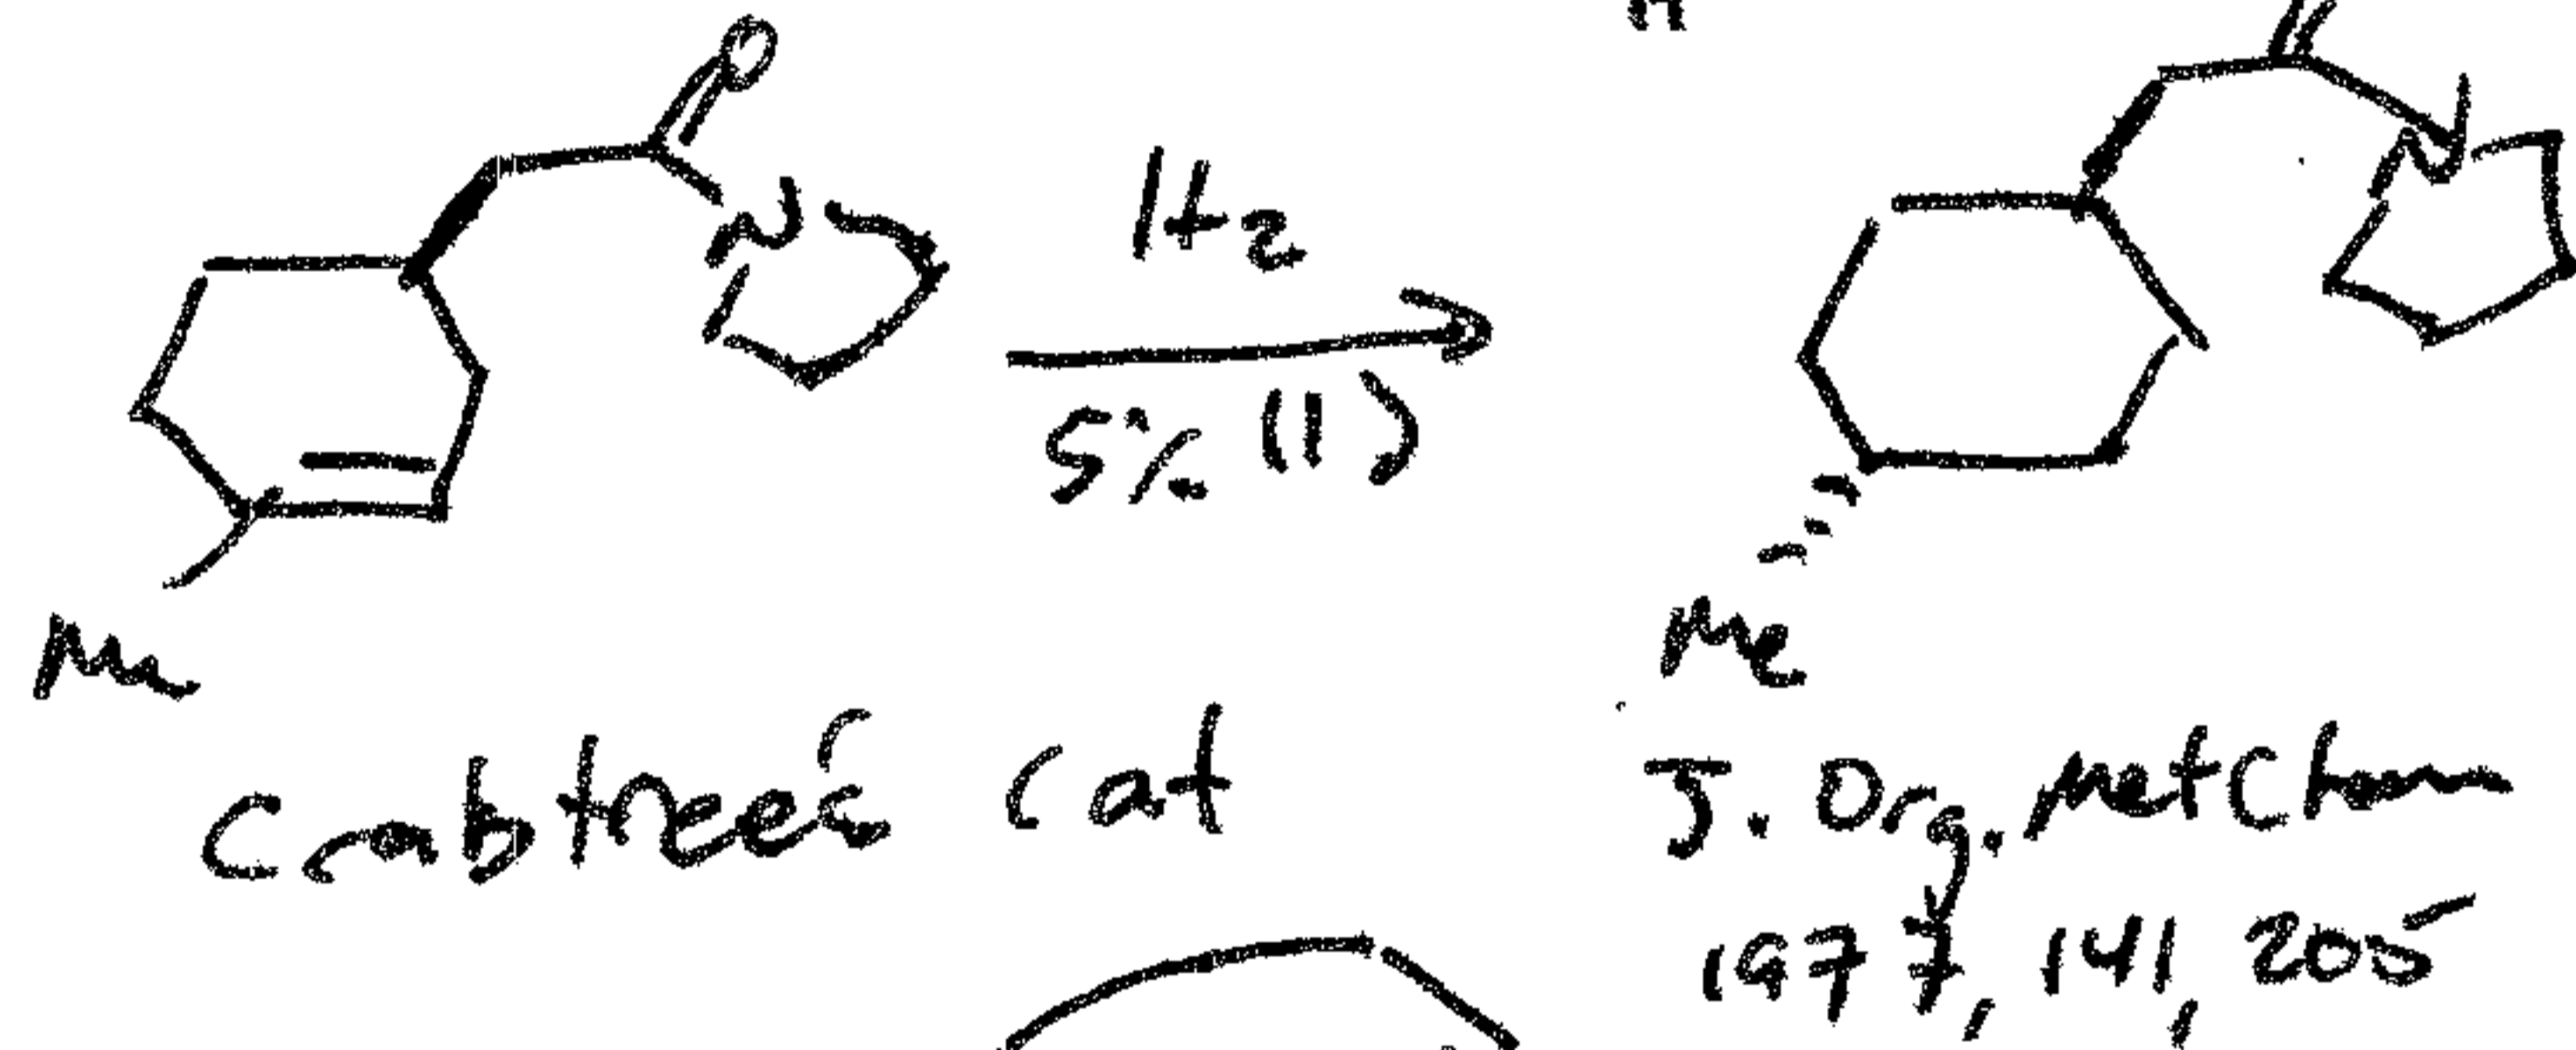 H
O
N
H2
N
5% (1)
Me
Me
Crabtree's cat
J. Org. Met Chem
1977, 141, 205